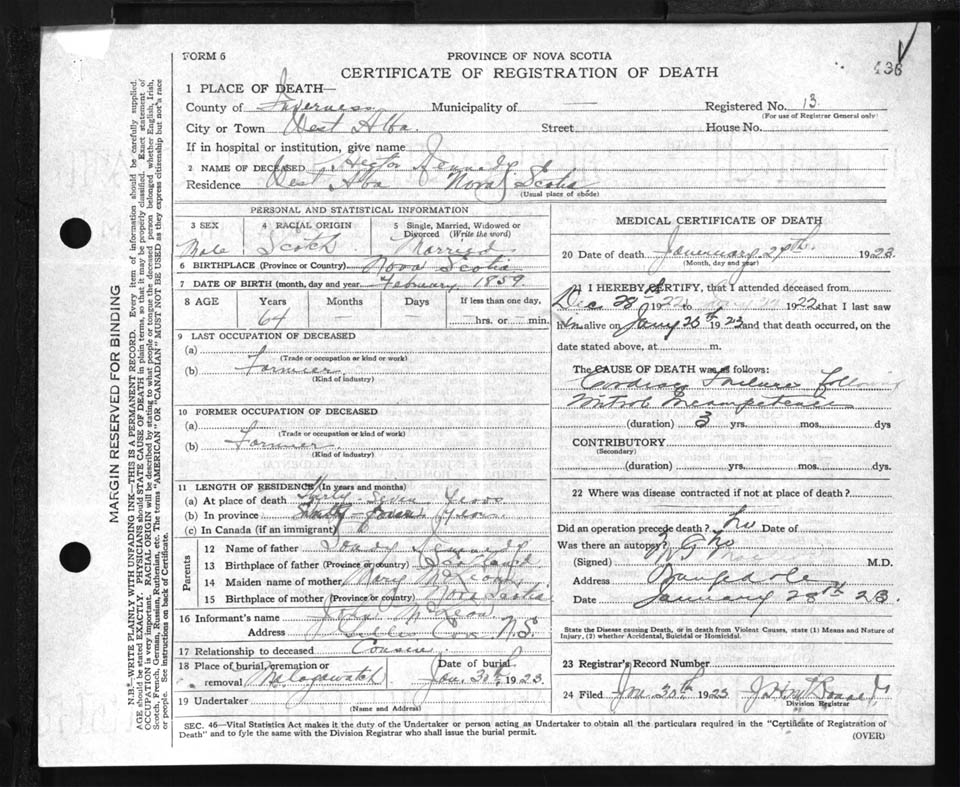 FORM 6
PROVINCE OF NOVA SCOTIA
CERTIFICATE OF REGISTRATION OF DEATH
436
1 PLACE OF DEATH—
County of Inverness Municipality of — Registered No. 13
(For use of Registrar General only)
City or Town West Alba Street House No.
If in hospital or institution, give name
2 NAME OF DECEASED Hector Kennedy
Residence West Alba Nova Scotia
(Usual place of abode)
MARGIN RESERVED FOR BINDING
N.B.—WRITE PLAINLY WITH UNFADING INK—THIS IS A PERMANENT RECORD. Every item of information should be carefully supplied.
AGE should be stated EXACTLY. PHYSICIANS should STATE CAUSE OF DEATH in plain terms, so that it may be properly classified. Exact statement of
OCCUPATION is very important. RACIAL ORIGIN will be described by stating to what people or tongue the deceased person belonged whether English, Irish,
Scotch, French, German, Russian, Ruthenian, etc. The terms "AMERICAN" OR "CANADIAN" MUST NOT BE USED as they express citizenship but not a race
or people. See instructions on back of Certificate.
PERSONAL AND STATISTICAL INFORMATION
3 SEX
4 RACIAL ORIGIN
5 Single, Married, Widowed or
Divorced (Write the word)
Male Scotch Married
6 BIRTHPLACE (Province or Country) Nova Scotia
7 DATE OF BIRTH (month, day and year) February 1859
8 AGE Years Months Days If less than one day,
64 — — — hrs. or — min.
9 LAST OCCUPATION OF DECEASED
(a)
(Trade or occupation or kind or work)
(b) Farmer
(Kind of industry)
10 FORMER OCCUPATION OF DECEASED
(a)
(Trade or occupation or kind of work)
(b) Farmer
(Kind of industry)
11 LENGTH OF RESIDENCE (In years and months)
(a) At place of death Thirty-Seven Years
(b) In province Sixty-Four Years
(c) In Canada (if an immigrant)
Parents
12 Name of father Kennedy
13 Birthplace of father (Province or country) Scotland
14 Maiden name of mother Mary
15 Birthplace of mother (Province or country) Nova Scotia
16 Informant's name John McLeod
Address Cove N.S.
17 Relationship to deceased Cousin
18 Place of burial, cremation or
removal Malagawatch
Date of burial
Jan. 30th 1923
19 Undertaker
(Name and Address)
MEDICAL CERTIFICATE OF DEATH
20 Date of death January 27th 1923
(Month, day and year)
21 I HEREBY CERTIFY, that I attended deceased from
Dec 28th 1922 to 1922 that I last saw
him alive on Jany 25th 1923 and that death occurred, on the
date stated above, at m.
The CAUSE OF DEATH was as follows:
Cardiac Failure following
Mitral Incompetence
(duration) 3 yrs. mos. dys
CONTRIBUTORY
(Secondary)
(duration) yrs. mos. dys.
22 Where was disease contracted if not at place of death?
Did an operation precede death? No Date of
Was there an autopsy? No
(Signed) M.D.
Address
Date January 28th 23.
State the Disease Causing Death, or in death from Violent Causes, state (1) Means and Nature of
Injury, (2) whether Accidental, Suicidal or Homicidal.
23 Registrar's Record Number
24 Filed Jan 30th 1923
Division Registrar
SEC. 46—Vital Statistics Act makes it the duty of the Undertaker or person acting as Undertaker to obtain all the particulars required in the "Certificate of Registration of
Death" and to fyle the same with the Division Registrar who shall issue the burial permit.
(OVER)